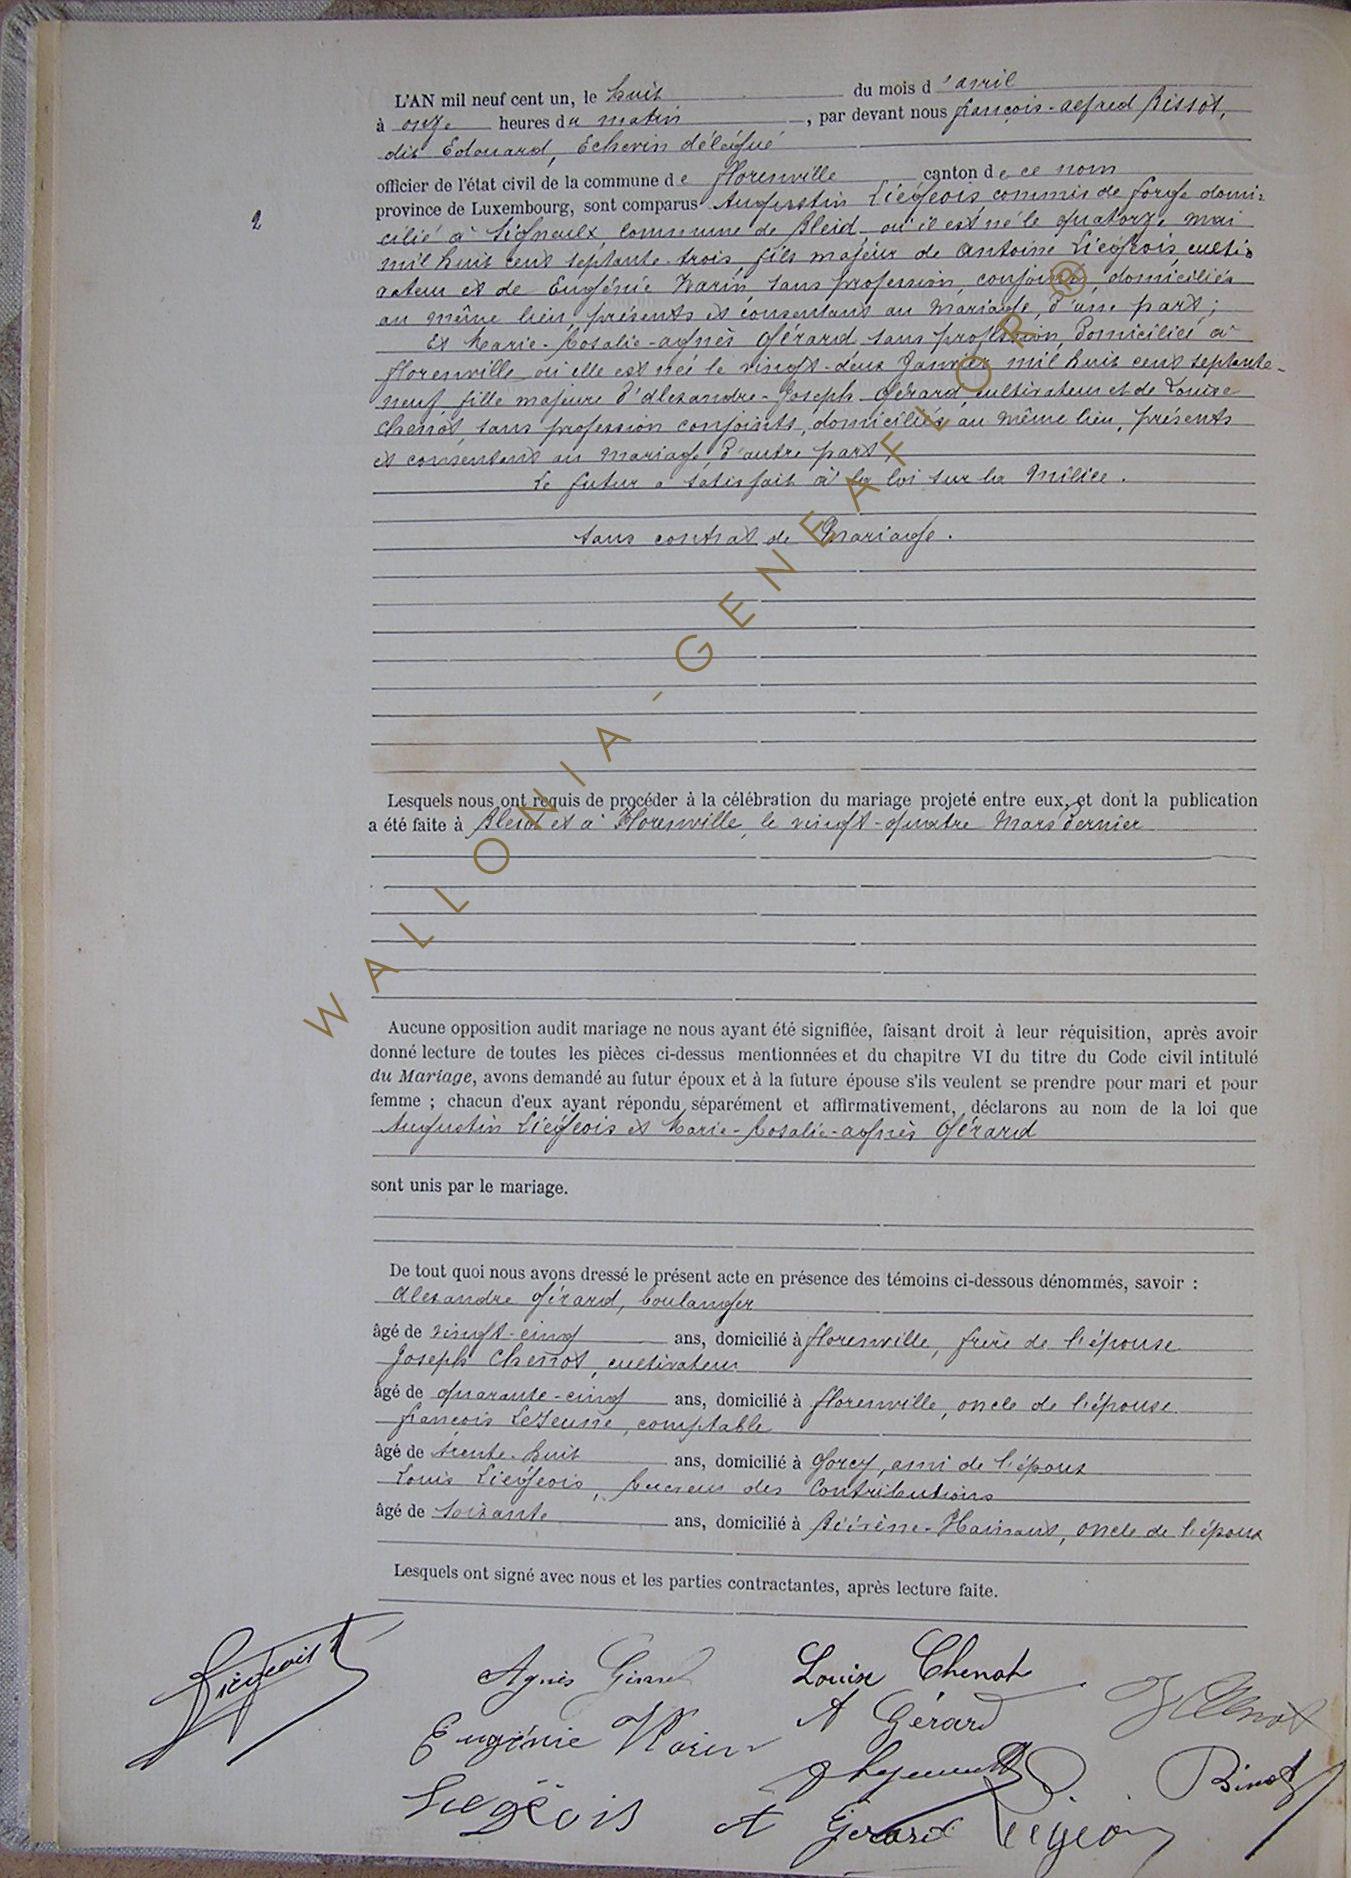 L'AN mil neuf cent un, le huit du mois d'avril
à onze heures du matin, par devant nous françois-alfred Bissot,
dit Edouard, Echevin délégué
officier de l'état civil de la commune de florenville canton de ce nom
province de Luxembourg, sont comparus Augustin Liégeois, commis de forge domi-
2
cilié à Signeulx, commune de Bleid où il est né le quatorze mai
mil huit cent septante-trois, fils majeur de Antoine Liégeois, culti-
vateur et de Eugénie Warin, sans profession, conjoints, domiciliés
au même lieu, présents et consentant au Mariage, d'une part;
Et Marie-Rosalie-agnès Gérard sans profession, domiciliée à
florenville où elle est née le vingt-deux Janvier mil huit cent septante-
neuf, fille majeure d'Alexandre-Joseph Gérard, cultivateur et de Louise
Chenot, sans profession conjoints, domiciliés au même lieu, présents
et consentant au mariage, d'autre part,
Le futur a satisfait à la loi sur la Milice.
Sans contrat de Mariage.
Lesquels nous ont requis de procéder à la célébration du mariage projeté entre eux, et dont la publication
a été faite à Bleid et à Florenville, le vingt-quatre Mars dernier
Aucune opposition audit mariage ne nous ayant été signifiée, faisant droit à leur réquisition, après avoir
donné lecture de toutes les pièces ci-dessus mentionnées et du chapitre VI du titre du Code civil intitulé
du Mariage, avons demandé au futur époux et à la future épouse s'ils veulent se prendre pour mari et pour
femme ; chacun d'eux ayant répondu séparément et affirmativement, déclarons au nom de la loi que
Augustin Liégeois et Marie-Rosalie-agnès Gérard
sont unis par le mariage.
De tout quoi nous avons dressé le présent acte en présence des témoins ci-dessous dénommés, savoir :
Alexandre Gérard, boulanger
âgé de vingt-cinq ans, domicilié à florenville, frère de l'épouse
Joseph Chenot, cultivateur
âgé de quarante-cinq ans, domicilié à florenville, oncle de l'épouse
françois LeJeune, comptable
âgé de trente-huit ans, domicilié à Gorcy, ami de l'époux
Louis Liégeois, Receveur des Contributions
âgé de soixante ans, domicilié à Hainaut, oncle de l'époux
Lesquels ont signé avec nous et les parties contractantes, après lecture faite.
Liégeois A
Agnès Gérard
Louise Chenot
J Chenot
Eugénie Warin
A Gérard
Liégeois
A Gérard
Liégeois
WALLONIA-GENEAFLOR®